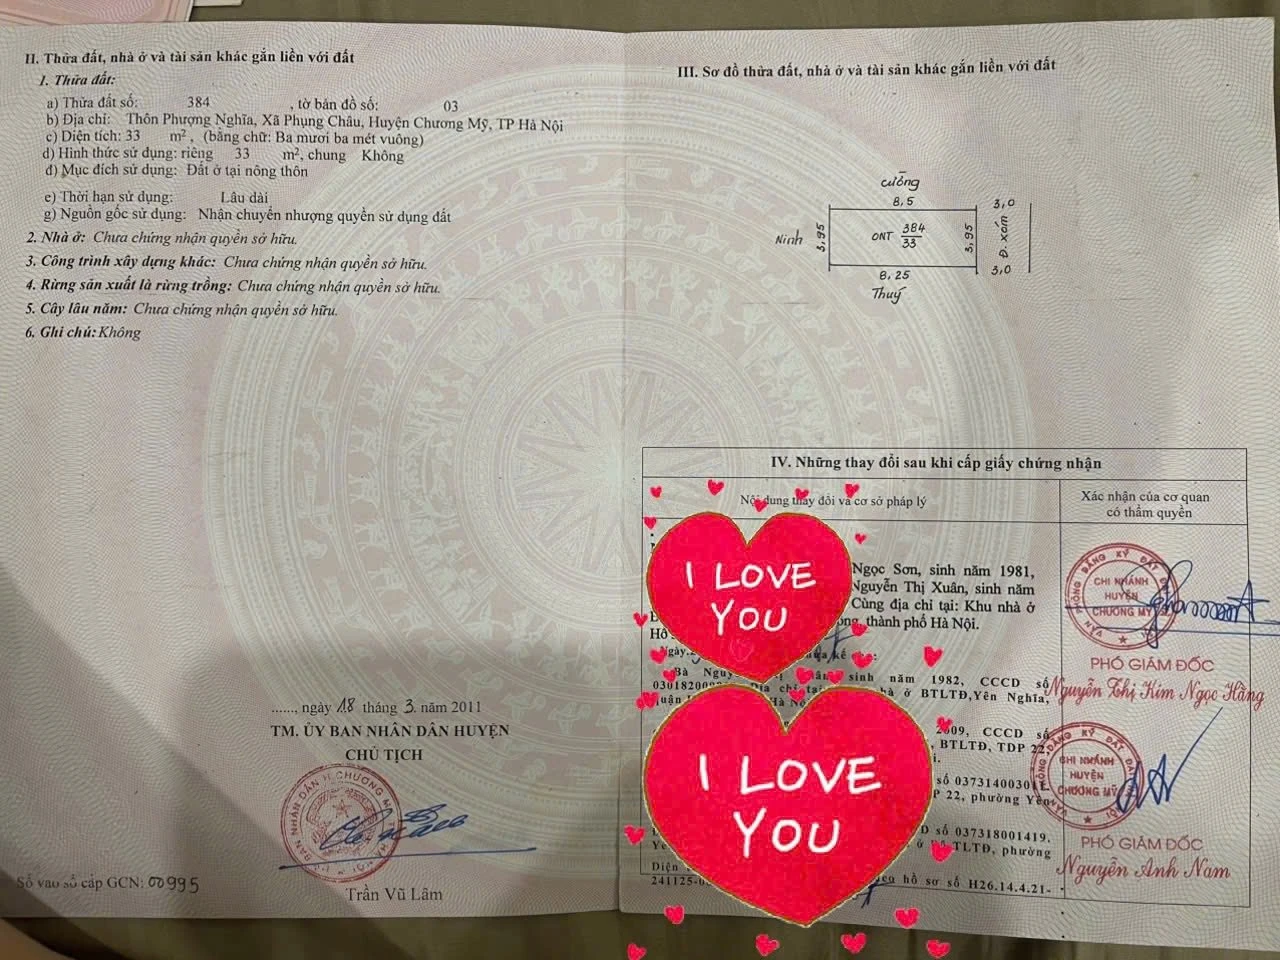 II. Thửa đất, nhà ở và tài sản khác gắn liền với đất
1. Thửa đất:
a) Thửa đất số: 384 , tờ bản đồ số: 03
b) Địa chỉ: Thôn Phượng Nghĩa, Xã Phụng Châu, Huyện Chương Mỹ, TP Hà Nội
c) Diện tích: 33 m², (bằng chữ: Ba mươi ba mét vuông)
d) Hình thức sử dụng: riêng 33 m², chung Không
đ) Mục đích sử dụng: Đất ở tại nông thôn
e) Thời hạn sử dụng: Lâu dài
g) Nguồn gốc sử dụng: Nhận chuyển nhượng quyền sử dụng đất
2. Nhà ở: Chưa chứng nhận quyền sở hữu.
3. Công trình xây dựng khác: Chưa chứng nhận quyền sở hữu.
4. Rừng sản xuất là rừng trồng: Chưa chứng nhận quyền sở hữu.
5. Cây lâu năm: Chưa chứng nhận quyền sở hữu.
6. Ghi chú: Không
......, ngày 18 tháng 3. năm 2011
TM. ỦY BAN NHÂN DÂN HUYỆN
CHỦ TỊCH
Trần Vũ Lâm
Số vào sổ cấp GCN: 00995
III. Sơ đồ thửa đất, nhà ở và tài sản khác gắn liền với đất
cường
8,5
3,0
Ninh
3,95
ONT 384
33
3,95
Đ. xóm
3,0
8,25
Thuý
IV. Những thay đổi sau khi cấp giấy chứng nhận
Nội dung thay đổi và cơ sở pháp lý
Xác nhận của cơ quan
có thẩm quyền
Ngọc Sơn, sinh năm 1981,
Nguyễn Thị Xuân, sinh năm
Cùng địa chỉ tại: Khu nhà ở
thành phố Hà Nội.
Bà sinh năm 1982, CCCD số
ở BTLTĐ,Yên Nghĩa,
2009, CCCD số
BTLTĐ, TDP 22,
số 037314003011
22, phường Yên
số 037318001419,
TLTĐ, phường
Diện hồ sơ số H26.14.4.21-
I LOVE
YOU
I LOVE
YOU
CHI NHÁNH
HUYỆN
CHƯƠNG MỸ
PHÓ GIÁM ĐỐC
Nguyễn Thị Kim Ngọc Hằng
CHI NHÁNH
HUYỆN
CHƯƠNG MỸ
PHÓ GIÁM ĐỐC
Nguyễn Anh Nam